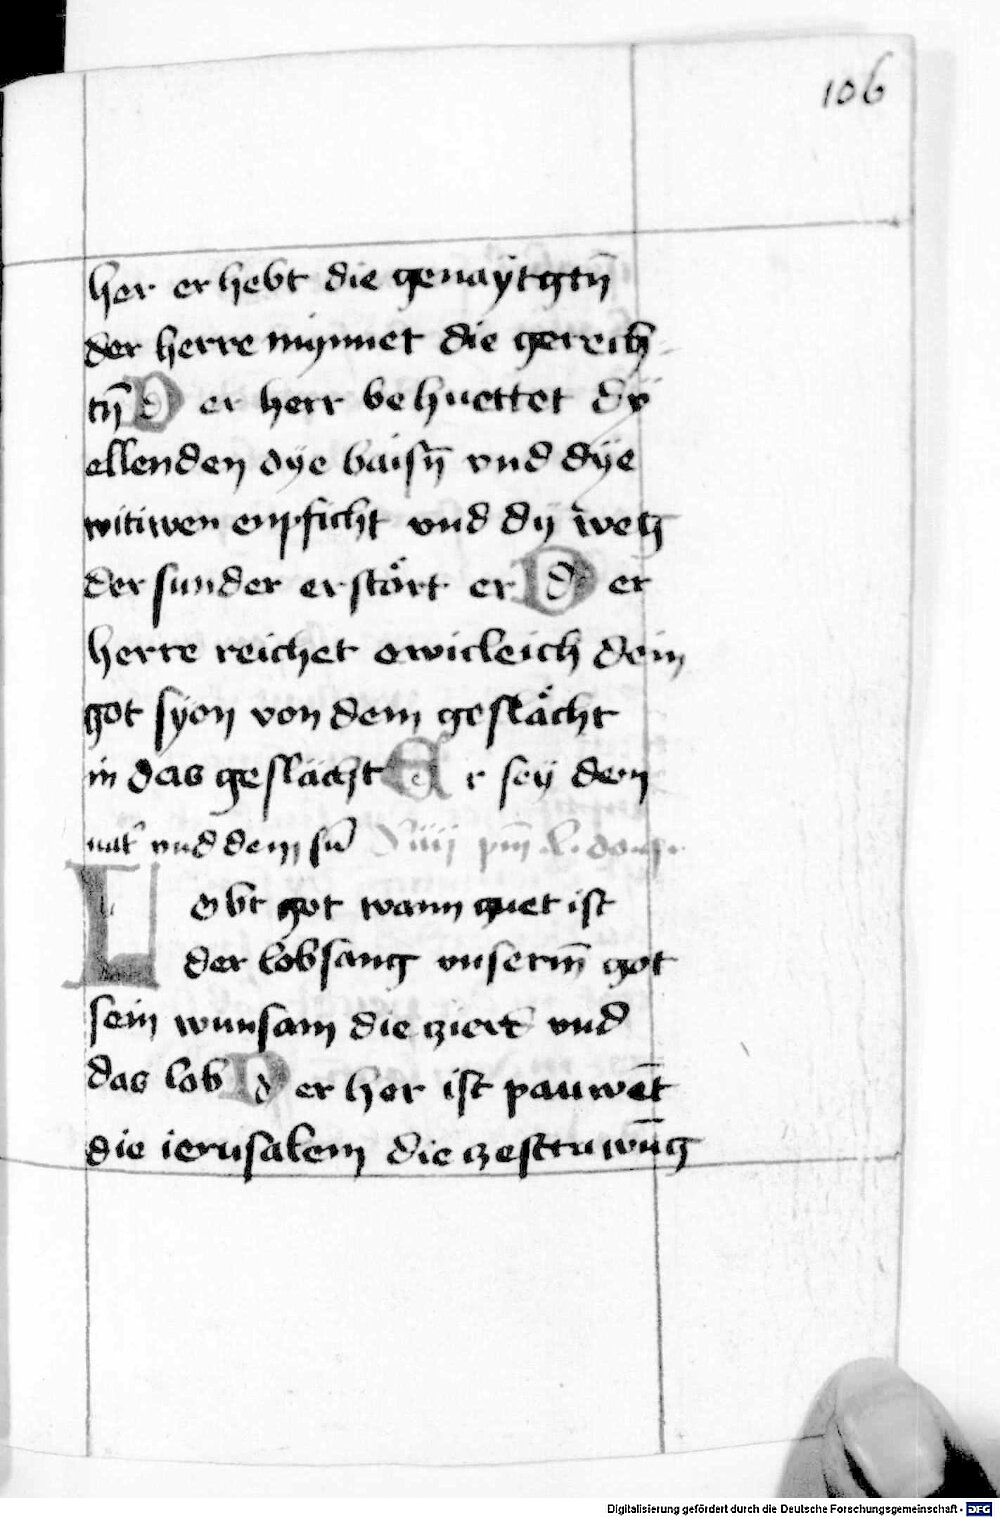 106
her erhebt die genaÿtgtn̄
der herre mynnet die gerech
tn̄ Der herr behuettet dÿ
ellenden dye baisn̄ vnd dÿe
witiwen enpficht vnd dy weg
der sunder erstört er Der
herre reichet ewicleich dein
got sÿon von dem geslächt
in das geslächt Er seÿ dem
vat̄ vnd dem sū
Lobt got wann guet ist
der lobsang vnserm̄ got
sein wunsam die zierd vnd
das lob Der her ist pauwēt
die ierusalem die zestruwūg
Digitalisierung gefördert durch die Deutsche Forschungsgemeinschaft - DFG